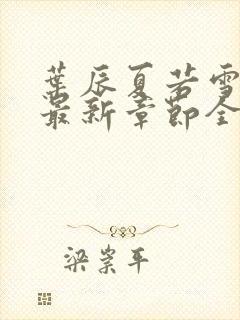 葉辰夏若雪
最新章節全
梁崇平